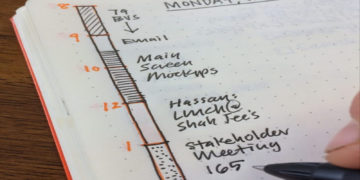 MONDAY,
8
79
BVS
9
Email
Main
Screen
Mockups
10
12
Hassan's
Lunch @
Shah Jee's
1
Stakeholder
Meeting
165